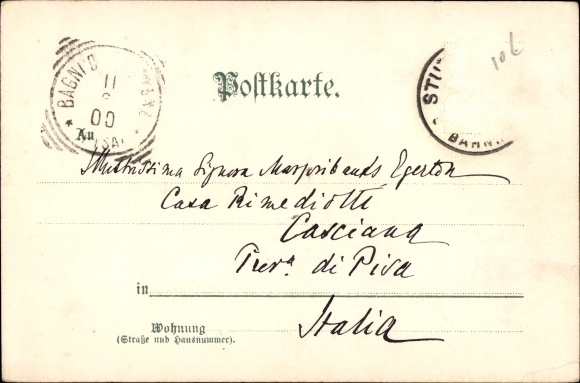 106
Postkarte.
BAGNI D
11
00
PISA
STU
BAHN
An
Illustrissima Signora Marjoribanks Egerton
Casa Rimediotti
Casciana
Prov.ª di Pisa
in
Italia
Wohnung
(Straße und Hausnummer).